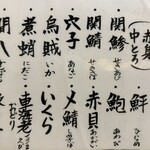 赤身
中とろ
関鯵
せきあじ
関鯖
せきさば
穴子
あなご
烏賊
いか
煮蛸
にだこ
鮃
ひらめ
鮑
あわび
赤貝
あかがい
〆鯖
しめさば
いくら
車海老
おどり